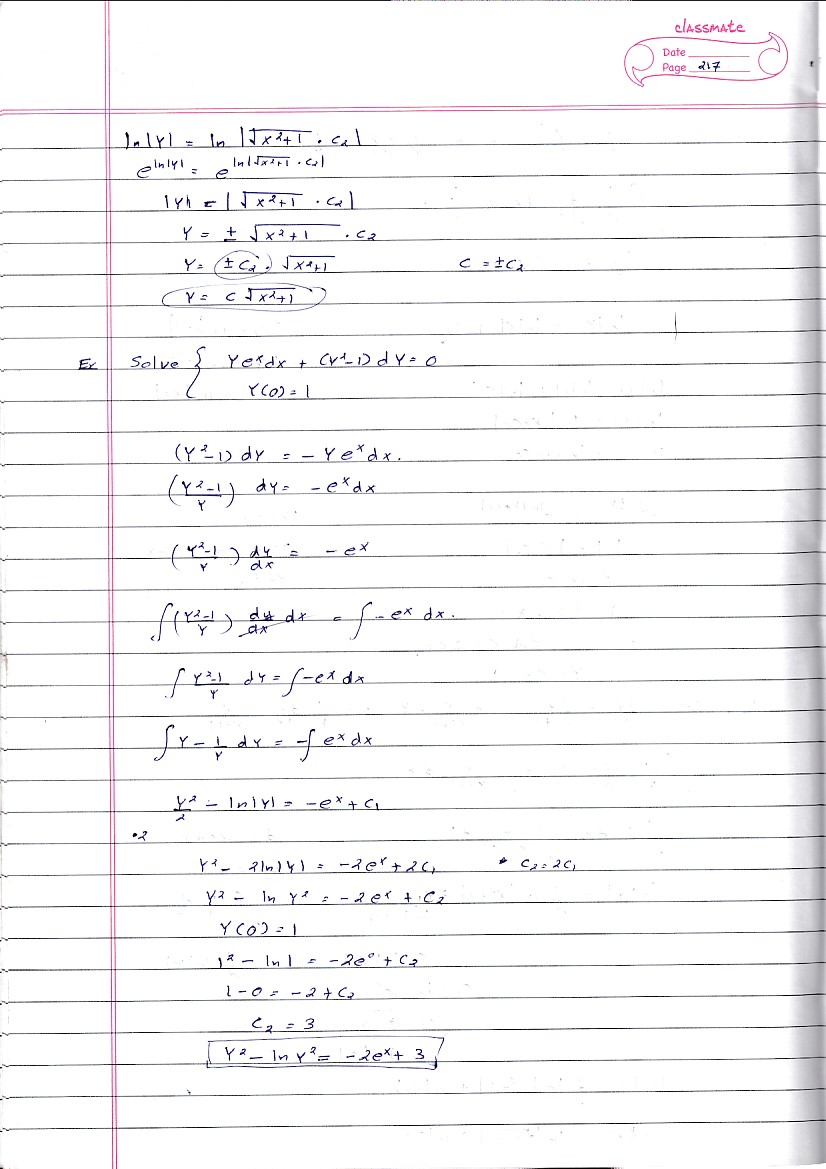 classmate
Date
Page 217
ln|Y| = ln |√x²+1 . c₂|
e^ln|Y| = e^ln|√x²+1 . c₂|
|Y| = |√x²+1 . c₂|
Y = ± √x²+1 . c₂
Y = (±c₂) √x²+1 C = ±c₂
Y = C √x²+1
Ex Solve { Ye^x dx + (Y²-1) dY = 0
Y(0) = 1
(Y²-1) dY = - Y e^x dx.
(Y²-1/Y) dY = -e^x dx
(Y²-1/Y) dY/dx = - e^x
∫(Y²-1/Y) dy/dx dx = ∫ - e^x dx.
∫ Y²-1/Y dY = ∫-e^x dx
∫ Y - 1/Y dY = -∫ e^x dx
Y²/2 - ln|Y| = -e^x + c₁
•2
Y² - 2ln|Y| = -2e^x + 2c₁ * c₂ = 2c₁
Y² - ln Y² = -2e^x + c₂
Y(0) = 1
1² - ln1 = -2e⁰ + c₂
1-0 = -2 + c₂
c₂ = 3
Y² - ln Y² = -2e^x + 3